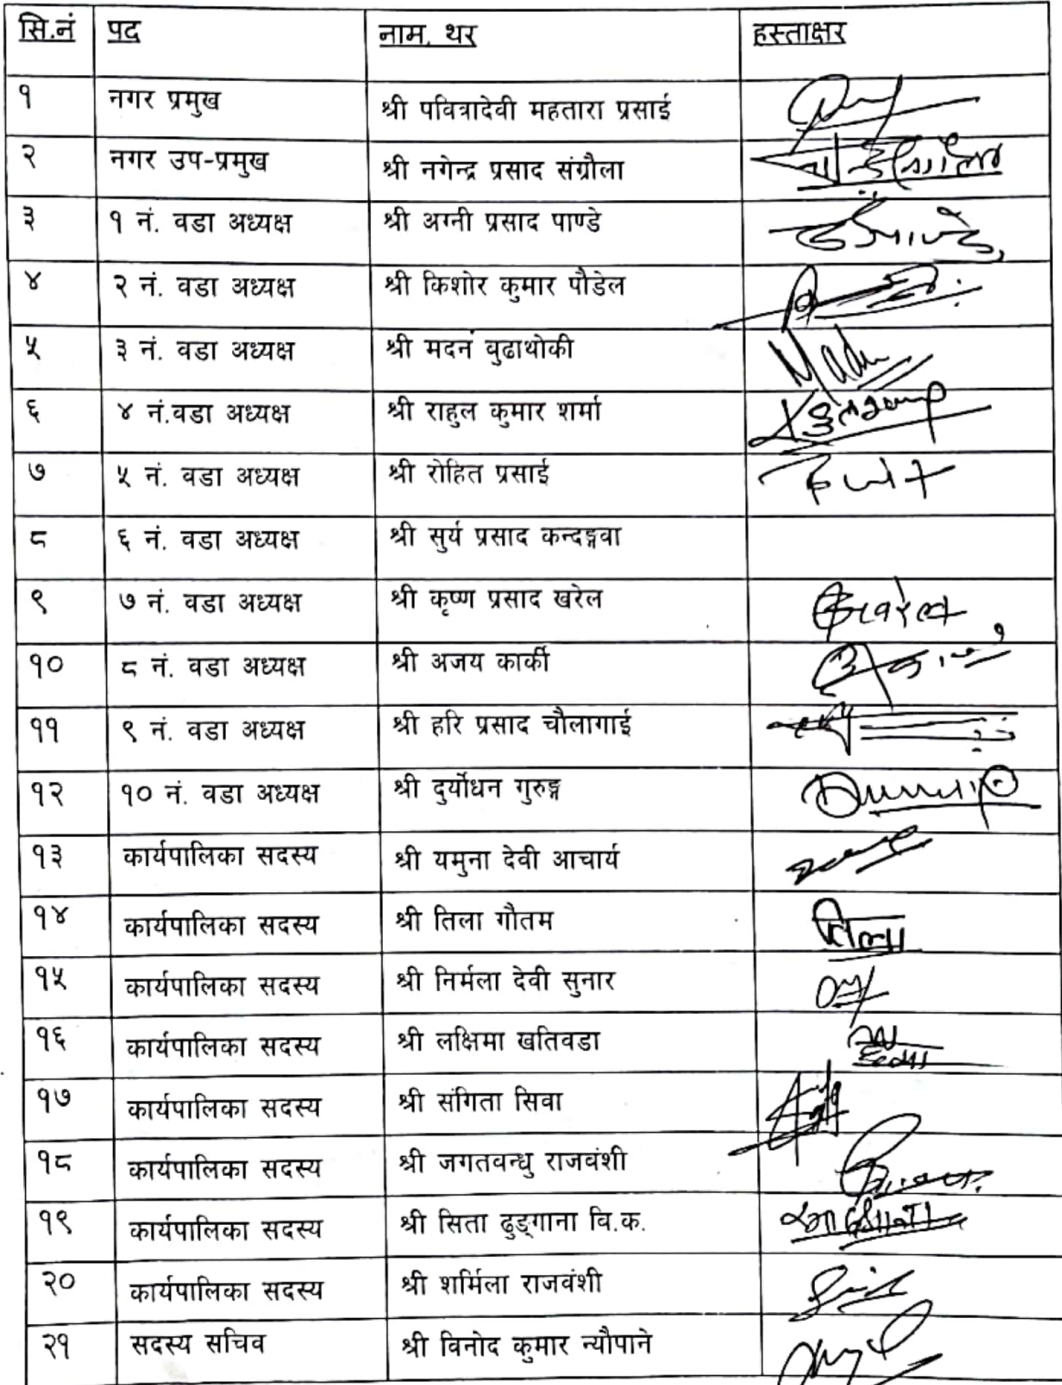 सि.नं पद नाम, थर हस्ताक्षर
१ नगर प्रमुख श्री पवित्रादेवी महतारा प्रसाई
२ नगर उप-प्रमुख श्री नगेन्द्र प्रसाद संग्रौला
३ १ नं. वडा अध्यक्ष श्री अग्नी प्रसाद पाण्डे
४ २ नं. वडा अध्यक्ष श्री किशोर कुमार पौडेल
५ ३ नं. वडा अध्यक्ष श्री मदन बुढाथोकी
६ ४ नं.वडा अध्यक्ष श्री राहुल कुमार शर्मा
७ ५ नं. वडा अध्यक्ष श्री रोहित प्रसाई
८ ६ नं. वडा अध्यक्ष श्री सुर्य प्रसाद कन्दङ्गवा
९ ७ नं. वडा अध्यक्ष श्री कृष्ण प्रसाद खरेल
१० ८ नं. वडा अध्यक्ष श्री अजय कार्की
११ ९ नं. वडा अध्यक्ष श्री हरि प्रसाद चौलागाई
१२ १० नं. वडा अध्यक्ष श्री दुर्योधन गुरुङ्ग
१३ कार्यपालिका सदस्य श्री यमुना देवी आचार्य
१४ कार्यपालिका सदस्य श्री तिला गौतम तिला
१५ कार्यपालिका सदस्य श्री निर्मला देवी सुनार
१६ कार्यपालिका सदस्य श्री लक्षिमा खतिवडा
१७ कार्यपालिका सदस्य श्री संगिता सिवा
१८ कार्यपालिका सदस्य श्री जगतवन्धु राजवंशी
१९ कार्यपालिका सदस्य श्री सिता ढुङ्गाना वि.क.
२० कार्यपालिका सदस्य श्री शर्मिला राजवंशी
२१ सदस्य सचिव श्री विनोद कुमार न्यौपाने